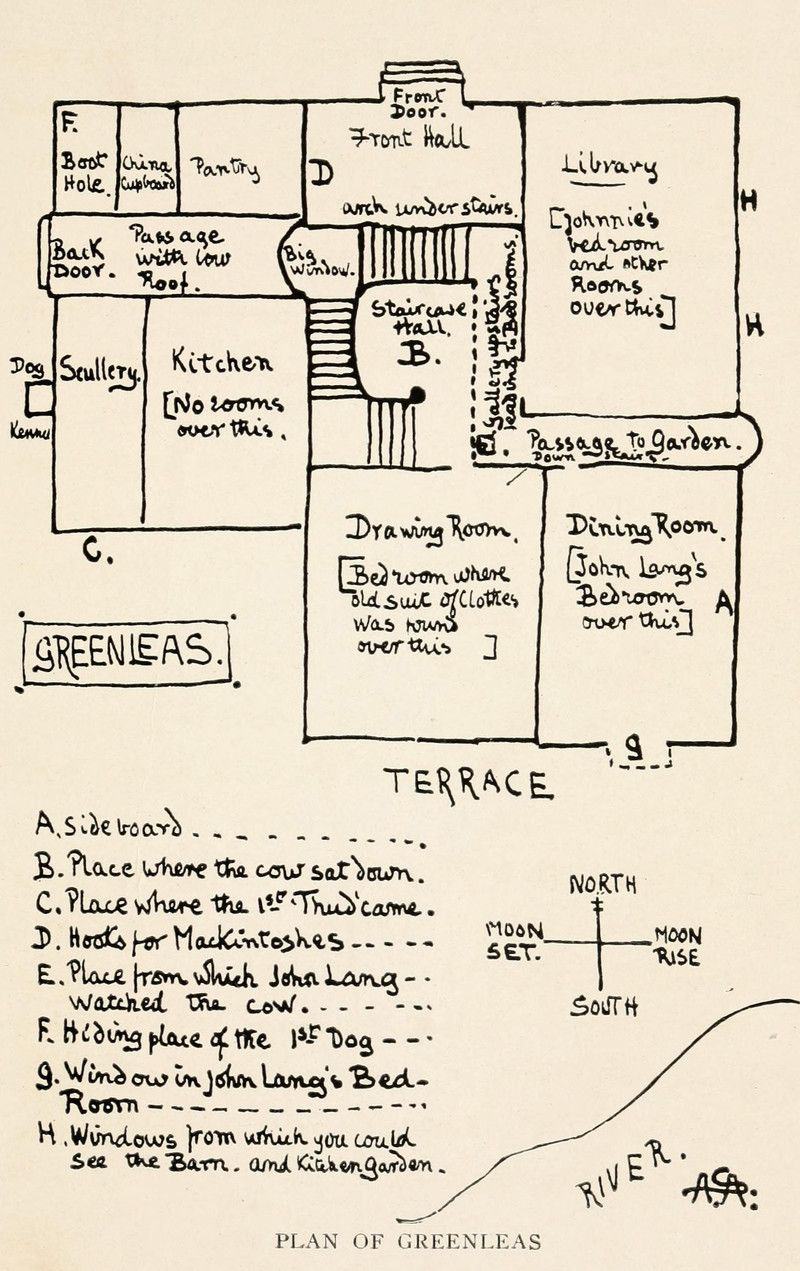 Front
Door.
Front Hall
D
arch under stairs.
F.
Boot
Hole.
China
Cupboard
Pantry
Library
[Johnnie's
bedroom
and other
Rooms
over this]
H
H
Back
Door.
Passage
with low
Roof.
Big
Window.
Staircase
Hall.
B.
Gallery upstairs
leading to Bedrooms.
E.
Dog
Kennel
Scullery.
Kitchen
[No rooms
over this.
Passage to Garden.
Down Stairs.
C.
Drawing Room.
[Bedroom where
old suit of Clothes
was found
over this ]
Dining Room.
[John Lang's
Bedroom
over this]
A
g
GREENLEAS.
TERRACE
A. Sideboard
B. Place where the cow sat down.
C. Place where the 1st 'Thud' came.
D. Hooks for Mackintoshes
E. Place from which John Lang
watched the cow.
F. Hiding place of the 1st Dog
g. Window in John Lang's Bed-
Room
H. Windows from which you could
see the Barn. and Kitchen Garden.
NORTH
MOON
SET.
MOON
RISE
SOUTH
RIVER.
PLAN OF GREENLEAS